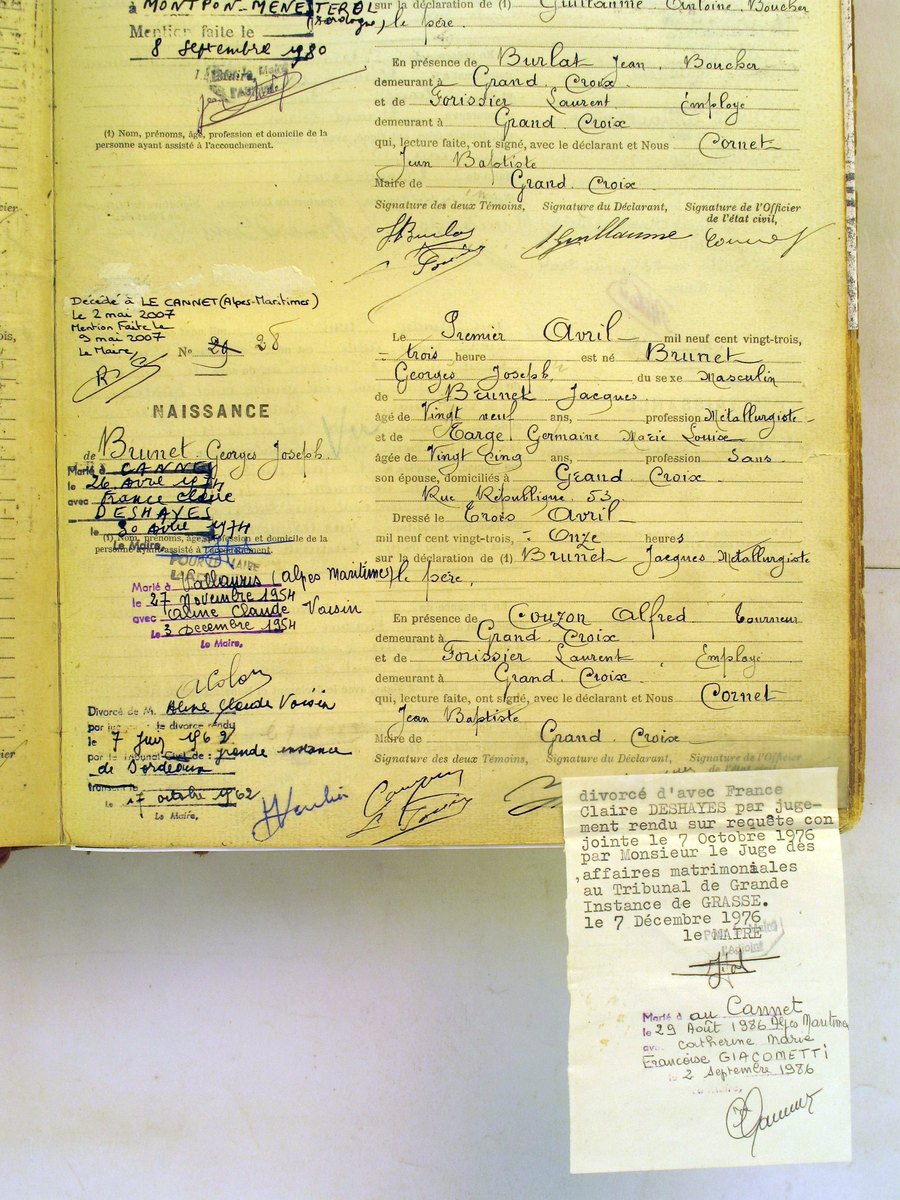 à MONTPON-MENESTEROL
(Dordogne)
Mention faite le
8 Septembre 1980
(1) Nom, prénoms, âge, profession et domicile de la
personne ayant assisté à l'accouchement.
sur la déclaration de (1) Guillaume Antoine Boucher
le père.
En présence de Burlat Jean Boucher
demeurant à Grand Croix
et de Forissier Laurent Employé
demeurant à Grand Croix
qui, lecture faite, ont signé, avec le déclarant et Nous Cornet
Jean Baptiste
Maire de Grand Croix
Signature des deux Témoins, Signature du Déclarant, Signature de l'Officier
de l'état civil,
JBurlat
Guillaume
Cornet
Décédé à LE CANNET (Alpes-Maritimes)
Le 2 mai 2007
Mention Faite le
9 mai 2007
Le Maire
No 29 28
NAISSANCE
de Brunet Georges Joseph
Marié à CANNES
le 26 Avril 1974
avec France Claire
DESHAYES
le 30 Avril 1974
Le Maire,
(1) Nom, prénoms, âge, profession et domicile de la
personne ayant assisté à l'accouchement.
POUR LE MAIRE
Marié à Vallauris (Alpes Maritimes)
le 27 Novembre 1954
avec Aline Claude Voisin
le 3 Décembre 1954
Le Maire,
Divorcé de M. Aline Claude Voisin
par jugement de divorce rendu
le 7 Juin 1962
par le Tribunal Civil de : grande instance
de Bordeaux
le 17 octobre 1962
Le Maire,
Le Premier Avril mil neuf cent vingt-trois,
trois heure est né Brunet
Georges Joseph du sexe Masculin
de Brunet Jacques
âgé de Vingt neuf ans, profession Métallurgiste
et de Targe Germaine Marie Louise
âgée de Vingt Cinq ans, profession Sans
son épouse, domiciliés à Grand Croix
Rue République 53
Dressé le Trois Avril
mil neuf cent vingt-trois, à Onze heures
sur la déclaration de (1) Brunet Jacques Métallurgiste
le père.
En présence de Couzon Alfred Tourneur
demeurant à Grand Croix
et de Forissier Laurent, Employé
demeurant à Grand Croix
qui, lecture faite, ont signé, avec le déclarant et Nous Cornet
Jean Baptiste
Maire de Grand Croix
Signature des deux Témoins, Signature du Déclarant, Signature de l'Officier
de l'état civil,
divorcé d'avec France
Claire DESHAYES par juge-
ment rendu sur requête con
jointe le 7 Octobre 1976
par Monsieur le Juge des
affaires matrimoniales
au Tribunal de Grande
Instance de GRASSE.
le 7 Décembre 1976
le MAIRE
Pour le Maire
l'Adjoint
Marié à au Cannet
le 29 Août 1986 Alpes Maritimes
avec Catherine Marie
Françoise GIACOMETTI
le 2 Septembre 1986
Le Maire,